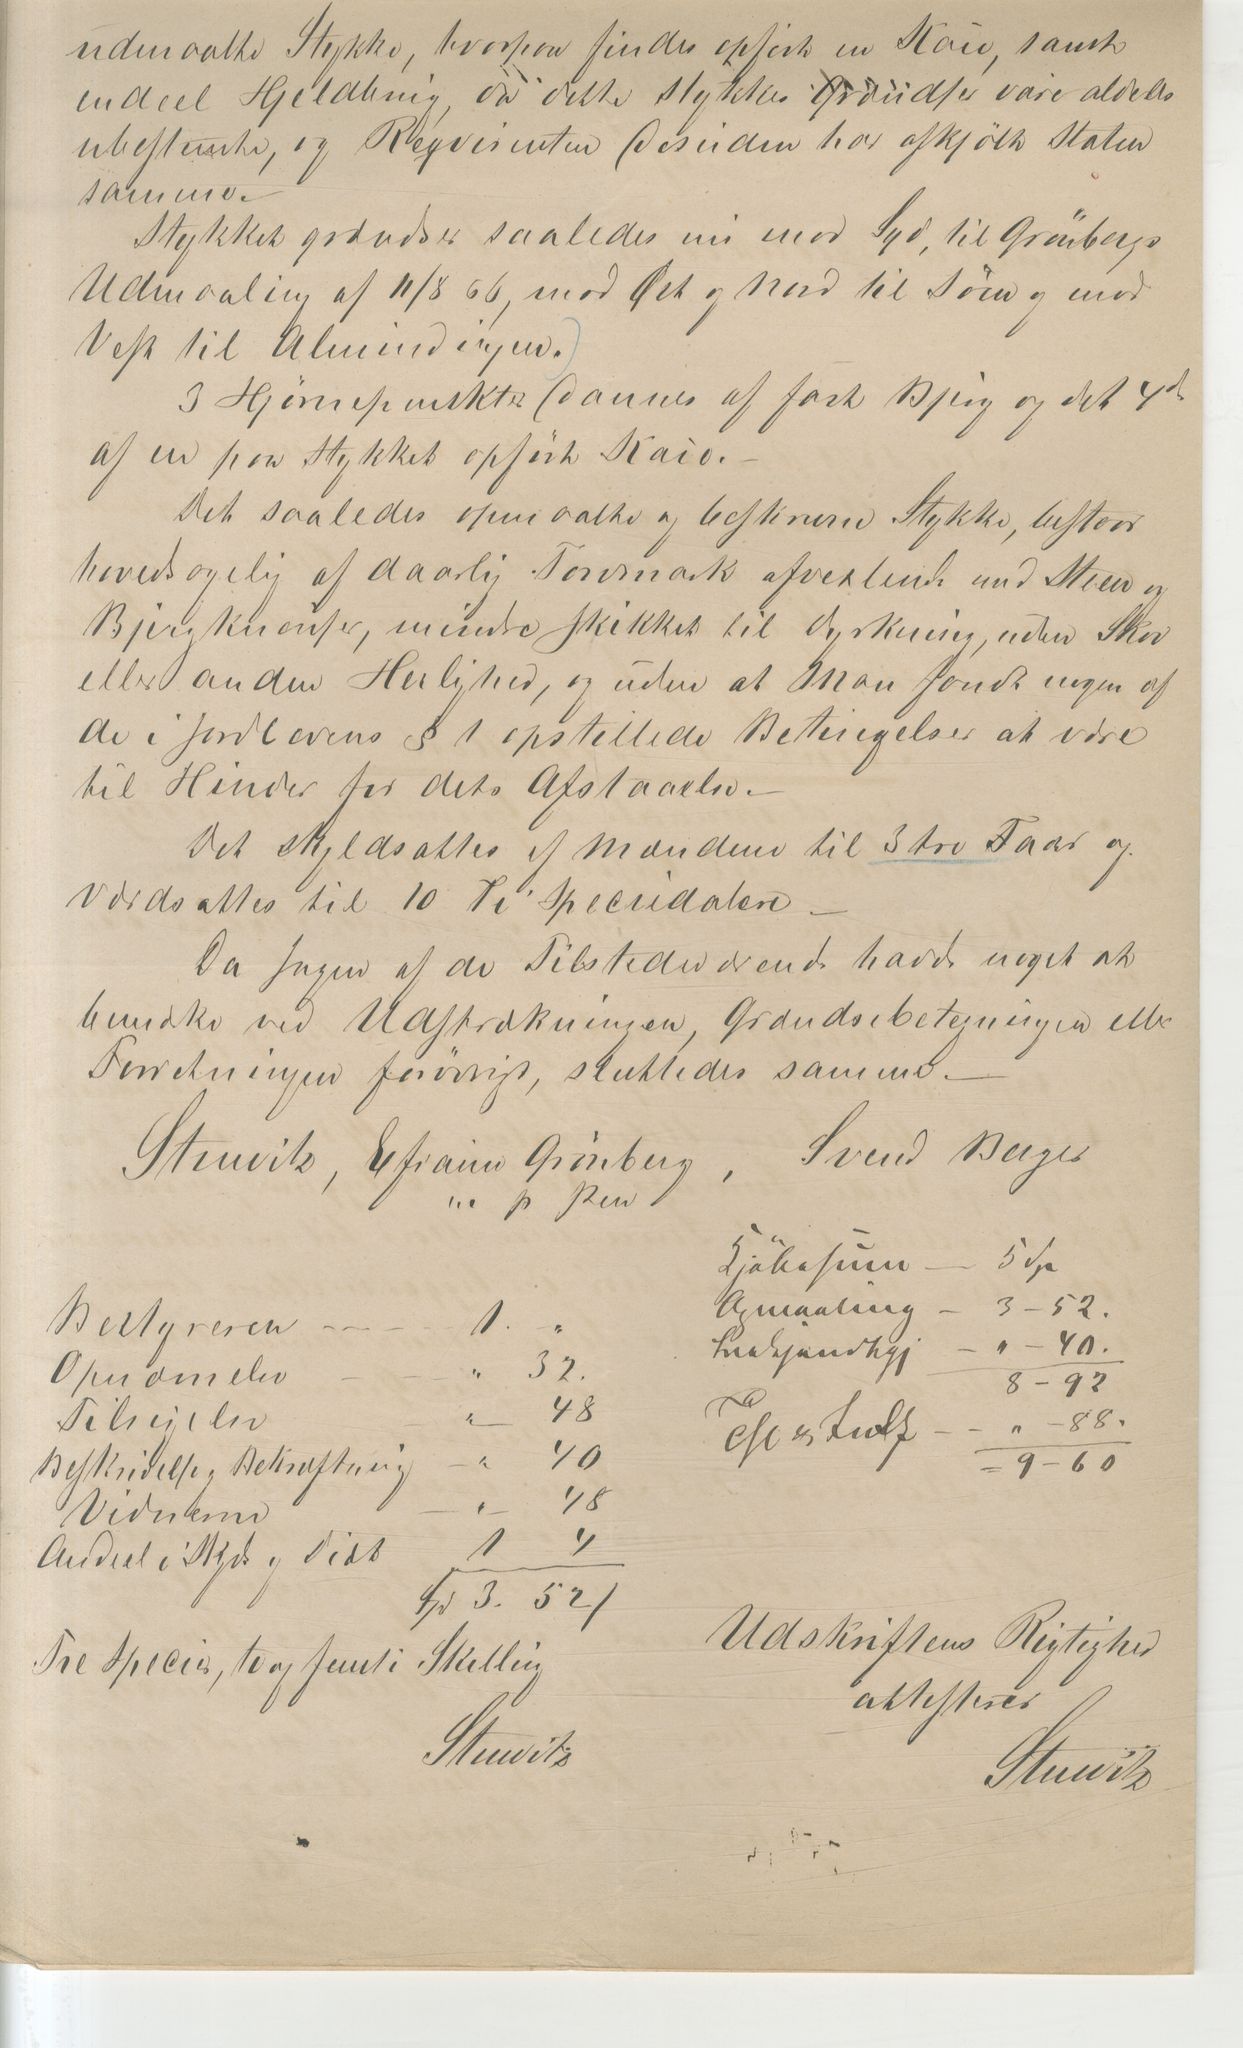 udmaalte Stykke, hvorpaa findes opført en Kaie, samt
endeel Hjeldbrug, da dette Stykkes Grændser vare aldeles
ubestemte, og Reqvirenten desuden har afkjøbt Staten
samme.-
Stykket grændser saaledes nu mod Syd, til Grönbergs
Udmaaling af 11/8 66, mod Øst og Nord til Söen og mod
Vest til Almindingen.)
3 Hjørnepunkter dannes af fast Bjerg og det 4de
af en paa Stykket opført Kaie.-
Det saaledes opmaalte og beskrevne Stykke, bestaar
hovedsagelig af daarlig Torvmark afvexlende med Steen og
Bjergknauser, mindre skikket til Dyrkning, uden Skov
eller anden Herlighed, og uden at Man fandt nogen af
de i Jordlovens § 1 opstillede Betingelser at være
til Hinder for dets Afstaaelse.-
Det skyldsattes af Mændene til 3 tre Faar og
værdsattes til 10 Ti Speciedalere -
Da Ingen af de Tilstedeværende havde noget at
bemærke ved Udstrækningen, Grændsebetegningen eller
Forretningen forövrigt, sluttedes samme.-
Stuwitz, Efraim Grönberg, Svend Berger
m p Pen
Kjöbesum - 5 Sp
Opmaaling - 3 - 52.
- " - 40.
8 - 92
- - " - 88.
= 9 - 60
Bestyreren - - - 1. "
Opnævnelse - - " 32.
Tilsigelse " 48
Beskrivelse og Bekræftning - " 40
Vidnerne - " 48
Andeel i Skyds og Diæt 1 4
Spd 3. 52/
Tre Species, to og femti Skilling
Stuwitz
Udskriftens Rigtighed
attesterer
Stuwitz